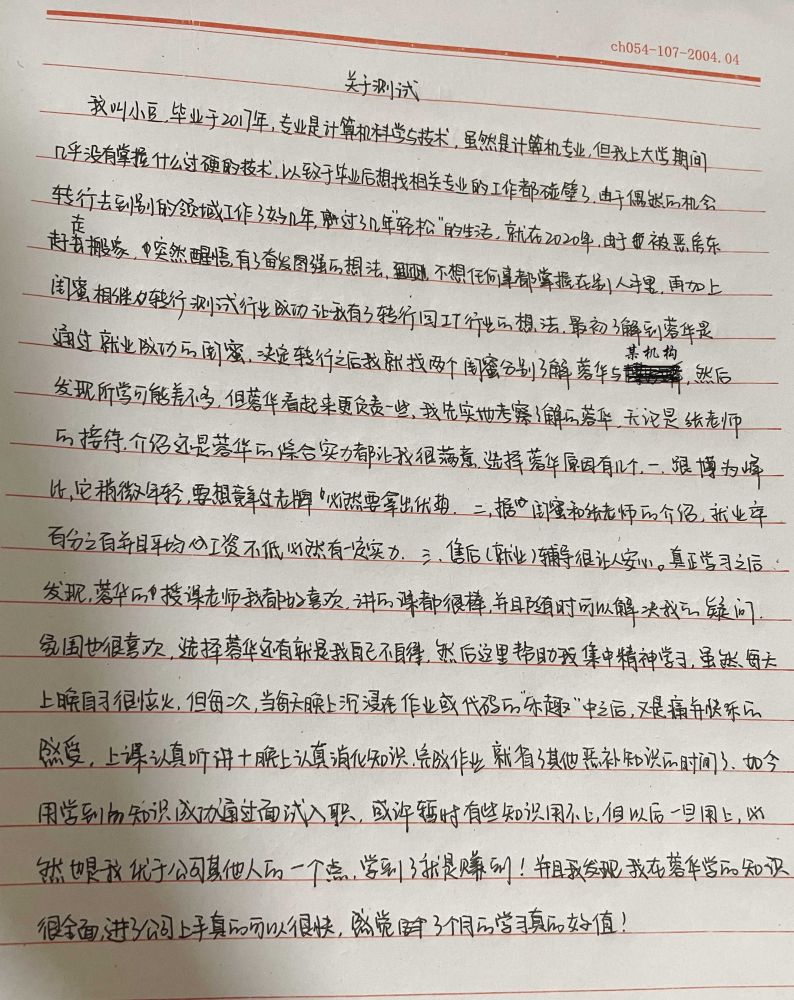 ch054-107-2004.04
关于测试
我叫小豆,毕业于2017年,专业是计算机科学与技术,虽然是计算机专业,但我上大学期间
几乎没有掌握什么过硬的技术,以致于毕业后想找相关专业的工作都碰壁了,由于偶然的机会
转行去到别的领域工作了好几年,过了几年"轻松"的生活,就在2020年,由于被恶房东
赶走搬家,突然醒悟,有了奋发图强的想法,不想任何事都掌握在别人手里,再加上
闺蜜相继转行测试行业成功让我有了转行回IT行业的想法,最初了解到蓉华是
通过就业成功的闺蜜,决定转行之后我就找两个闺蜜分别了解蓉华与某机构,然后
发现所学可能差不多,但蓉华看起来更负责一些,我先实地考察了解的蓉华,无论是张老师
的接待,介绍还是蓉华的综合实力都让我很满意,选择蓉华原因有几个.一、跟博为峰
比,它稍微年轻,要想竞过老牌必然要拿出优势.二、据闺蜜和张老师的介绍,就业率
百分之百并且平均工资不低必然有一定实力.三、售后(就业)辅导很让人安心。真正学习之后
发现,蓉华的授课老师我都好喜欢,讲的课都很棒,并且随时可以解决我的疑问.
氛围也很喜欢,选择蓉华还有就是我自己不自律,然后这里帮助我集中精神学习,虽然每天
上晚自习很恼火,但每次,当每天晚上沉浸在作业或代码的"乐趣"中之后,又是痛并快乐的
感受,上课认真听讲+晚上认真消化知识.完成作业就省了其他恶补知识的时间了.如今
用学到的知识成功通过面试入职,或许暂时有些知识用不上,但以后一旦用上,必
然也是我优于公司其他人的一个点,学到了就是赚到!并且我发现我在蓉华学的知识
很全面,进了公司上手真的可以很快,感觉3个月的学习真的好值!